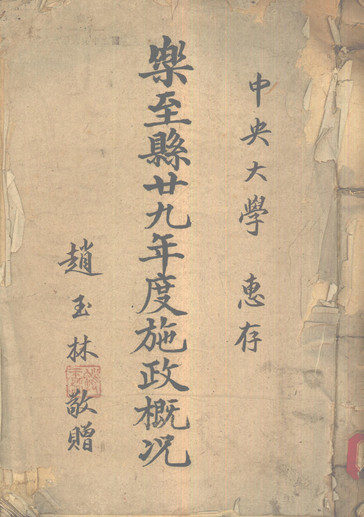 中央大學 惠存
樂至縣廿九年度施政概况
趙玉林 敬贈